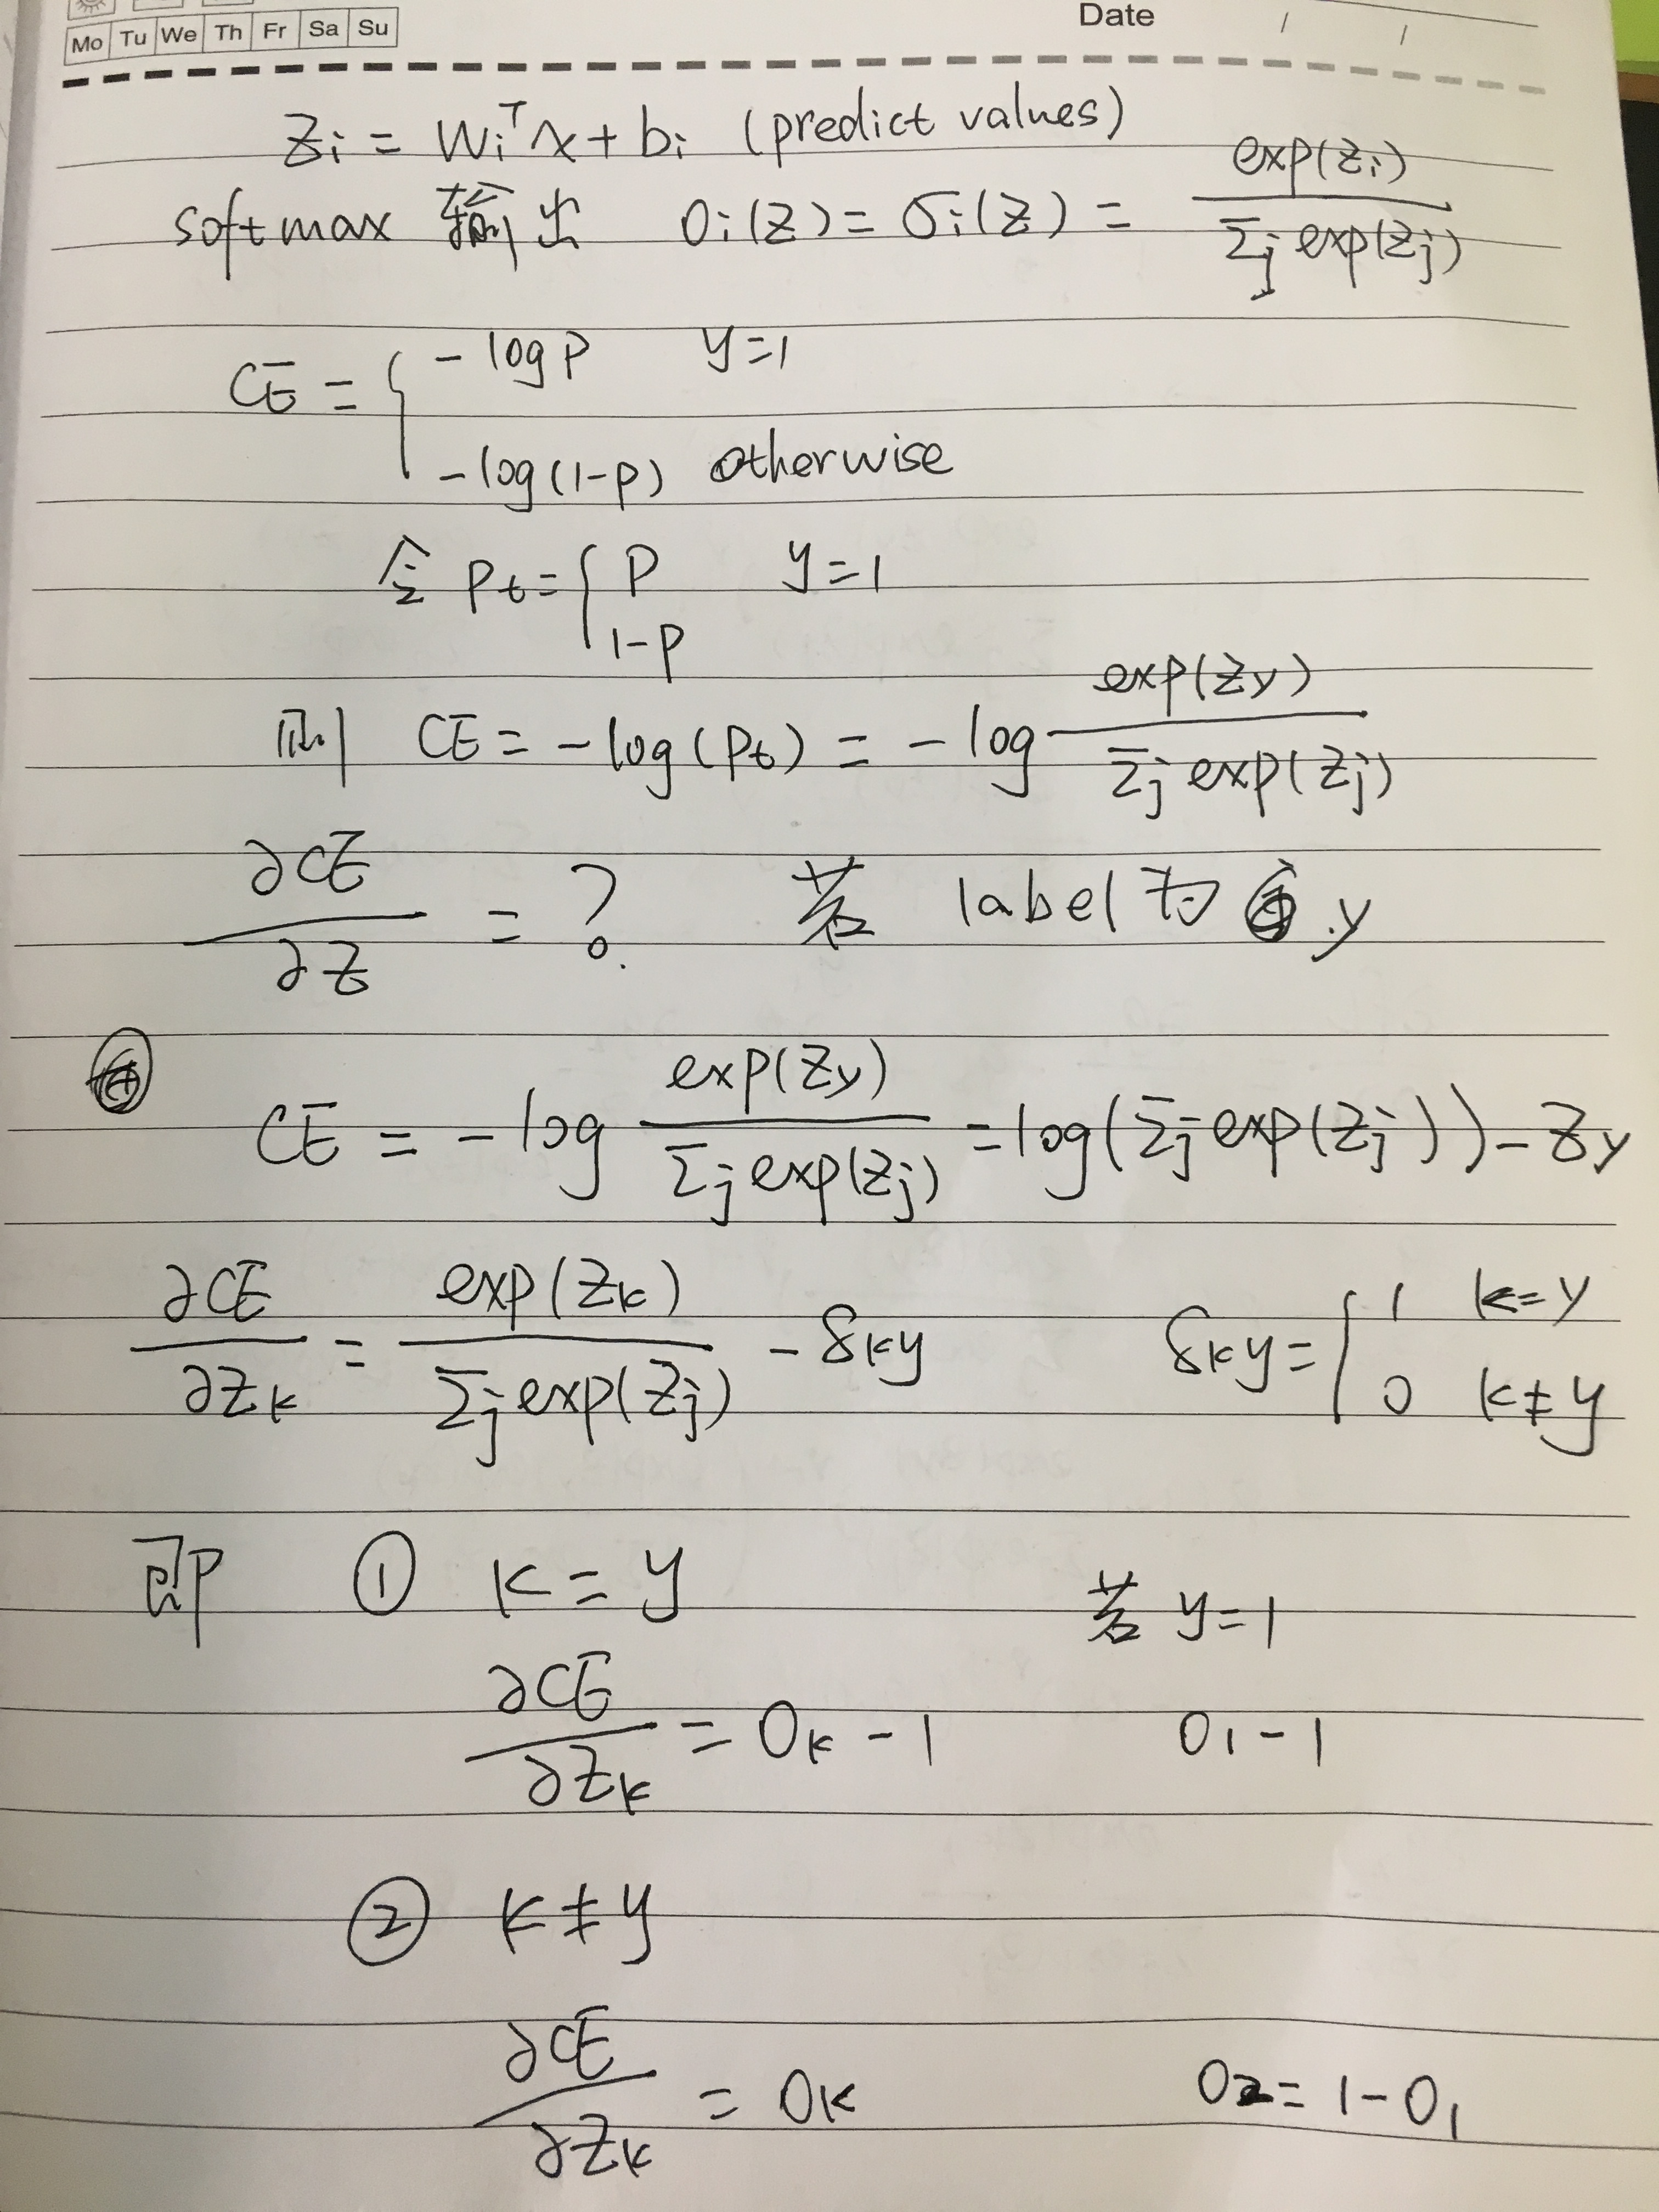 Date / /
Mo Tu We Th Fr Sa Su
Zi = Wi^T x + bi (predict values)
softmax 输出 Oi(Z) = σi(Z) = exp(Zi) / Σj exp(Zj)
CE = { -log P y=1
-log(1-P) otherwise
令 Pt = { P y=1
1-P
则 CE = -log(Pt) = -log exp(Zy) / Σj exp(Zj)
∂CE / ∂Z = ? 若 label 为 y
CE = -log exp(Zy) / Σj exp(Zj) = log(Σj exp(Zj)) - Zy
∂CE / ∂Zk = exp(Zk) / Σj exp(Zj) - δky δky = { 1 k=y
0 k≠y
即 ① k = y 若 y=1
∂CE / ∂Zk = Ok - 1 O1 - 1
② k ≠ y
∂CE / ∂Zk = Ok O2 = 1 - O1